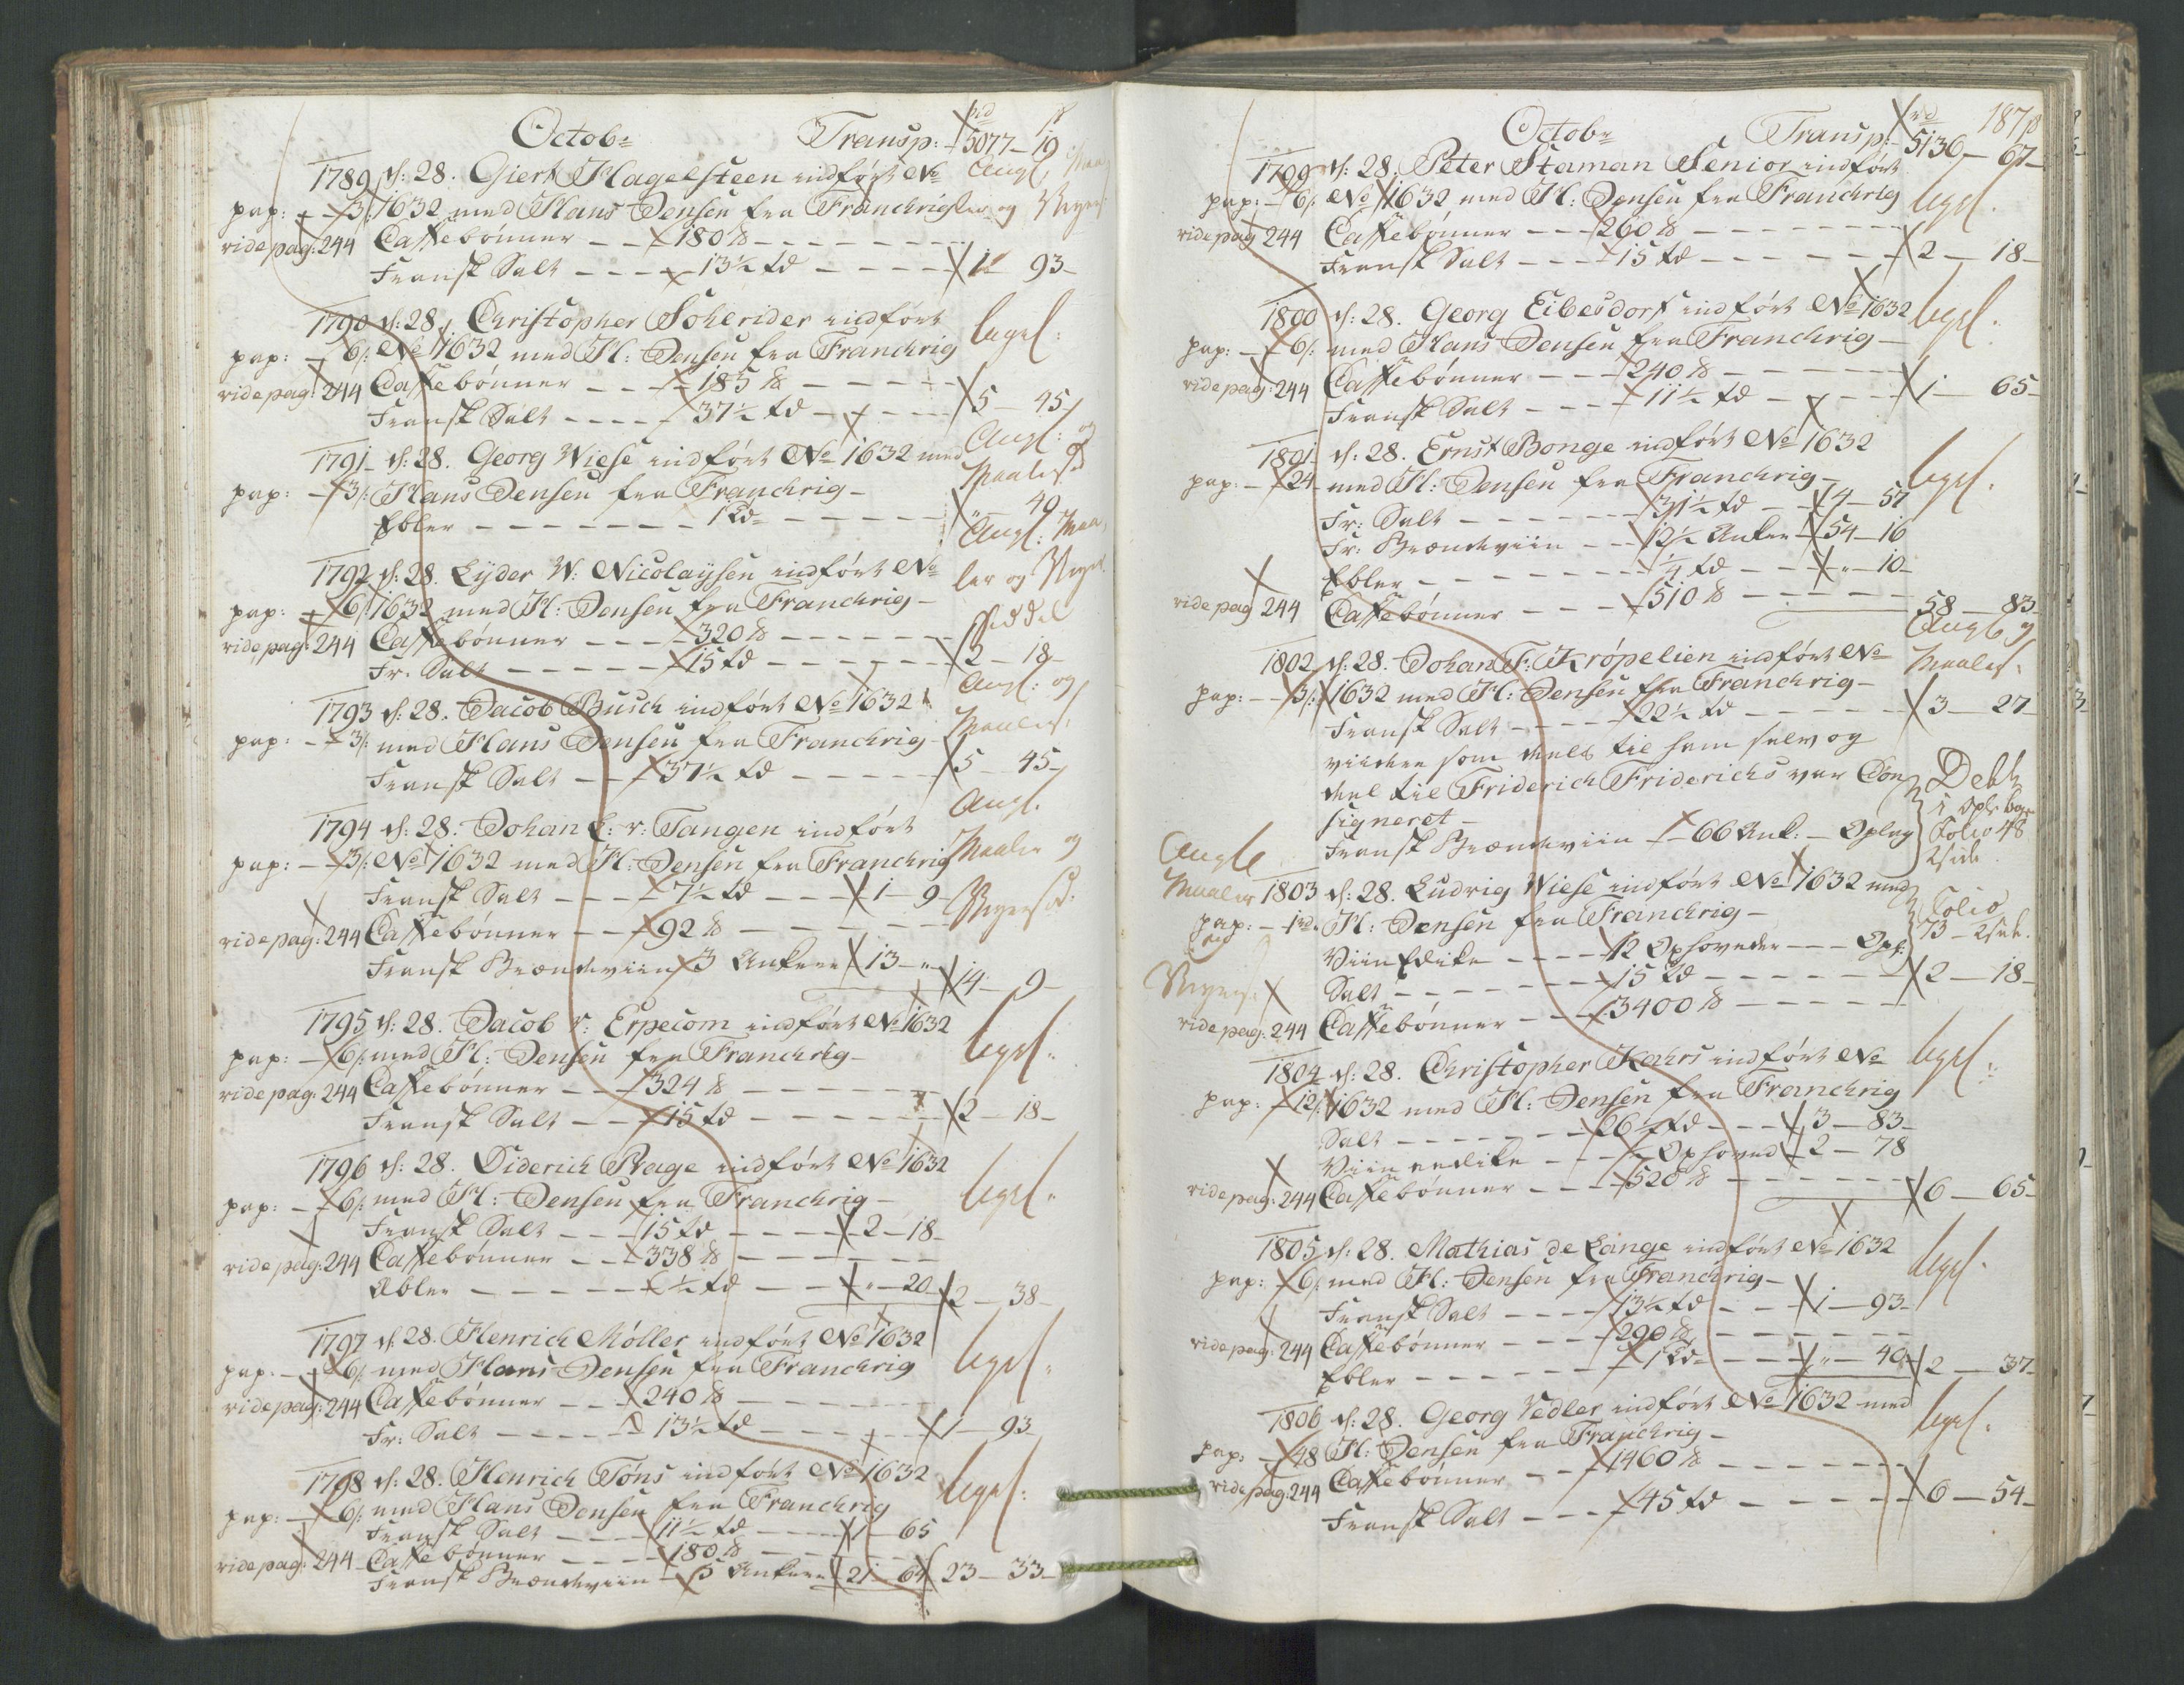 Octobr Transp: 5077 – 19
1789 d: 28. Giert Hagelsteen indfört No
pap: – 3/: 1632 med Hans Jensen fra Franchrig
vide pag: 244 Caffebönner – – 180 ℔
Fransk Salt – – – – 13½ td – – – 1 93
1790 d: 28. Christopher Sohlrider indfört
pap: – 6/: No 1632 med H: Jensen fra Franchrig
vide pag: 244 Caffebönner – – – 185 ℔
Fransk Salt – – – – 37½ td – – – 5 – 45
1791 d: 28. Georg Wiese indfört No 1632 med
pap: – 3/: Hans Jensen fra Franchrig –
Ebler – – – – – – 1 td – – – „ – 40
1792 d: 28. Lyder W: Nicolaysen indfört No
pap: – 6/: 1632 med H: Jensen fra Franchrig –
vide pag: 244 Caffebönner – – – 320 ℔
Fr. Salt – – – – 15 td – – – 2 – 18
1793 d: 28. Jacob Busch indfört No 1632
pap: – 3/: med Hans Jensen fra Franchrig
Fransk Salt – – 37½ td – – – 5 – 45
1794 d: 28. Johan L: v: Tangen indfört
pap: – 3/: No 1632 med H: Jensen fra Franchrig
Fransk Salt – – – 7½ td – – 1 – 9
vide pag: 244 Caffebönner – – 92 ℔
Fransk Brændeviin 3 Ankere 13 – „ 14 – 9
1795 d: 28. Jacob v: Erpecom indfört No 1632
pap: – 6/: med H: Jensen fra Franchrig
vide pag: 244 Caffebönner – – 324 ℔
Fransk Salt – – 15 td – – – 2 – 18
1796 d: 28. Diderich Prage indfört No 1632
pap: – 6/: med H: Jensen fra Franchrig –
Fransk Salt – – – 15 td – – – 2 – 18
vide pag: 244 Caffebönner – – 338 ℔
Æbler – – – – – ½ td – – „ – 20 2 – 38
1797 d: 28. Henrich Möller indfört No 1632
pap. – 6/: med Hans Jensen fra Franchrig
vide pag: 244 Caffebönner – – 240 ℔
Fr: Salt – – – – 13½ td – – – 1 – 93
1798 d: 28. Henrich Töns indfört No 1632
pap: – 6/: med Hans Jensen fra Franchrig
Fransk Salt – – – 11½ td – – 1 – 65
vide pag: 244 Caffebönner – – – 180 ℔
Fransk Brændeviin – 5 Ankere 21 – 64 23 – 33
Octobr Transp: 5136 – 67
187
1799 d: 28. Peter Staman Senior indfört
pap: – 6/: No 1632 med H: Jensen fra Franchrig
vide pag 244 Caffebönner – – – 260 ℔
Fransk Salt – – – 15 td – – – 2 – 18
1800 d: 28. Georg Eibesdorf indfört No 1632
pap: – 6/: med Hans Jensen fra Franchrig –
vide pag: 244 Caffebönner – – – 240 ℔
Fransk Salt – – – 11½ td – – – 1 – 65
1801 d: 28. Ernst Bonge indfört No 1632
pap: – 24 med H: Jensen fra Franchrig –
Fr: Salt – – – – – 31½ td – – 4 – 57
Fr: Brændeviin – – 12½ Anker 54 – 16
Ebler – – – – – – ¼ td – – „ – 10
vide pag 244 Caffebönner – – – 510 ℔ – – – 58 – 83
1802 d: 28. Johan F: Kröpelien indfört No
pap: – 3/: 1632 med H: Jensen fra Franchrig –
Fransk Salt – – – – 22½ td – – – 3 – 27
som deels til ham selv og
deel til Friderich Friderichs var Con
signeret –
Fransk Brændeviin – 66 Ank: – Oplag
Debt
Folio 48
2 side
1803 d: 28. Ludvig Wiese indfört No 1632 med
pap: – 1rd. H: Jensen fra Franchrig –
Viin Edike – – – – 12 Oxhoveder – – – Opl:
Folio
73 – 2 side.
Salt – – – – – – 15 td – – – 2 – 18
vide pag: 244 Caffebönner – – – 3400 ℔
1804 d: 28. Christopher Kahrs indfört No
pap: – 12/: 1632 med H: Jensen fra Franchrig
Salt – – – – – – 26½ td – – – 3 – 83
Viin edike – – – Oxhoved – 2 – 78
vide pag: 244 Caffebönner – – – 520 ℔ – – – 6 – 65
1805 d: 28. Mathias de Lange indfört No 1632
pap: – 6/: med H: Jensen fra Franchrig –
Fransk Salt – – – – 13½ td – – 1 – 93
vide pag: 244 Caffebönner – – – – 290 ℔
Ebler – – – – – 1 td – – – „ – 40 2 – 37
1806 d: 28. Georg Vedler indfört No 1632 med
pap: – 48 H: Jensen fra Franchrig –
vide pag: 244 Caffebönner – – – 1460 ℔
Fransk Salt – – – 45 td – – – 6 – 54